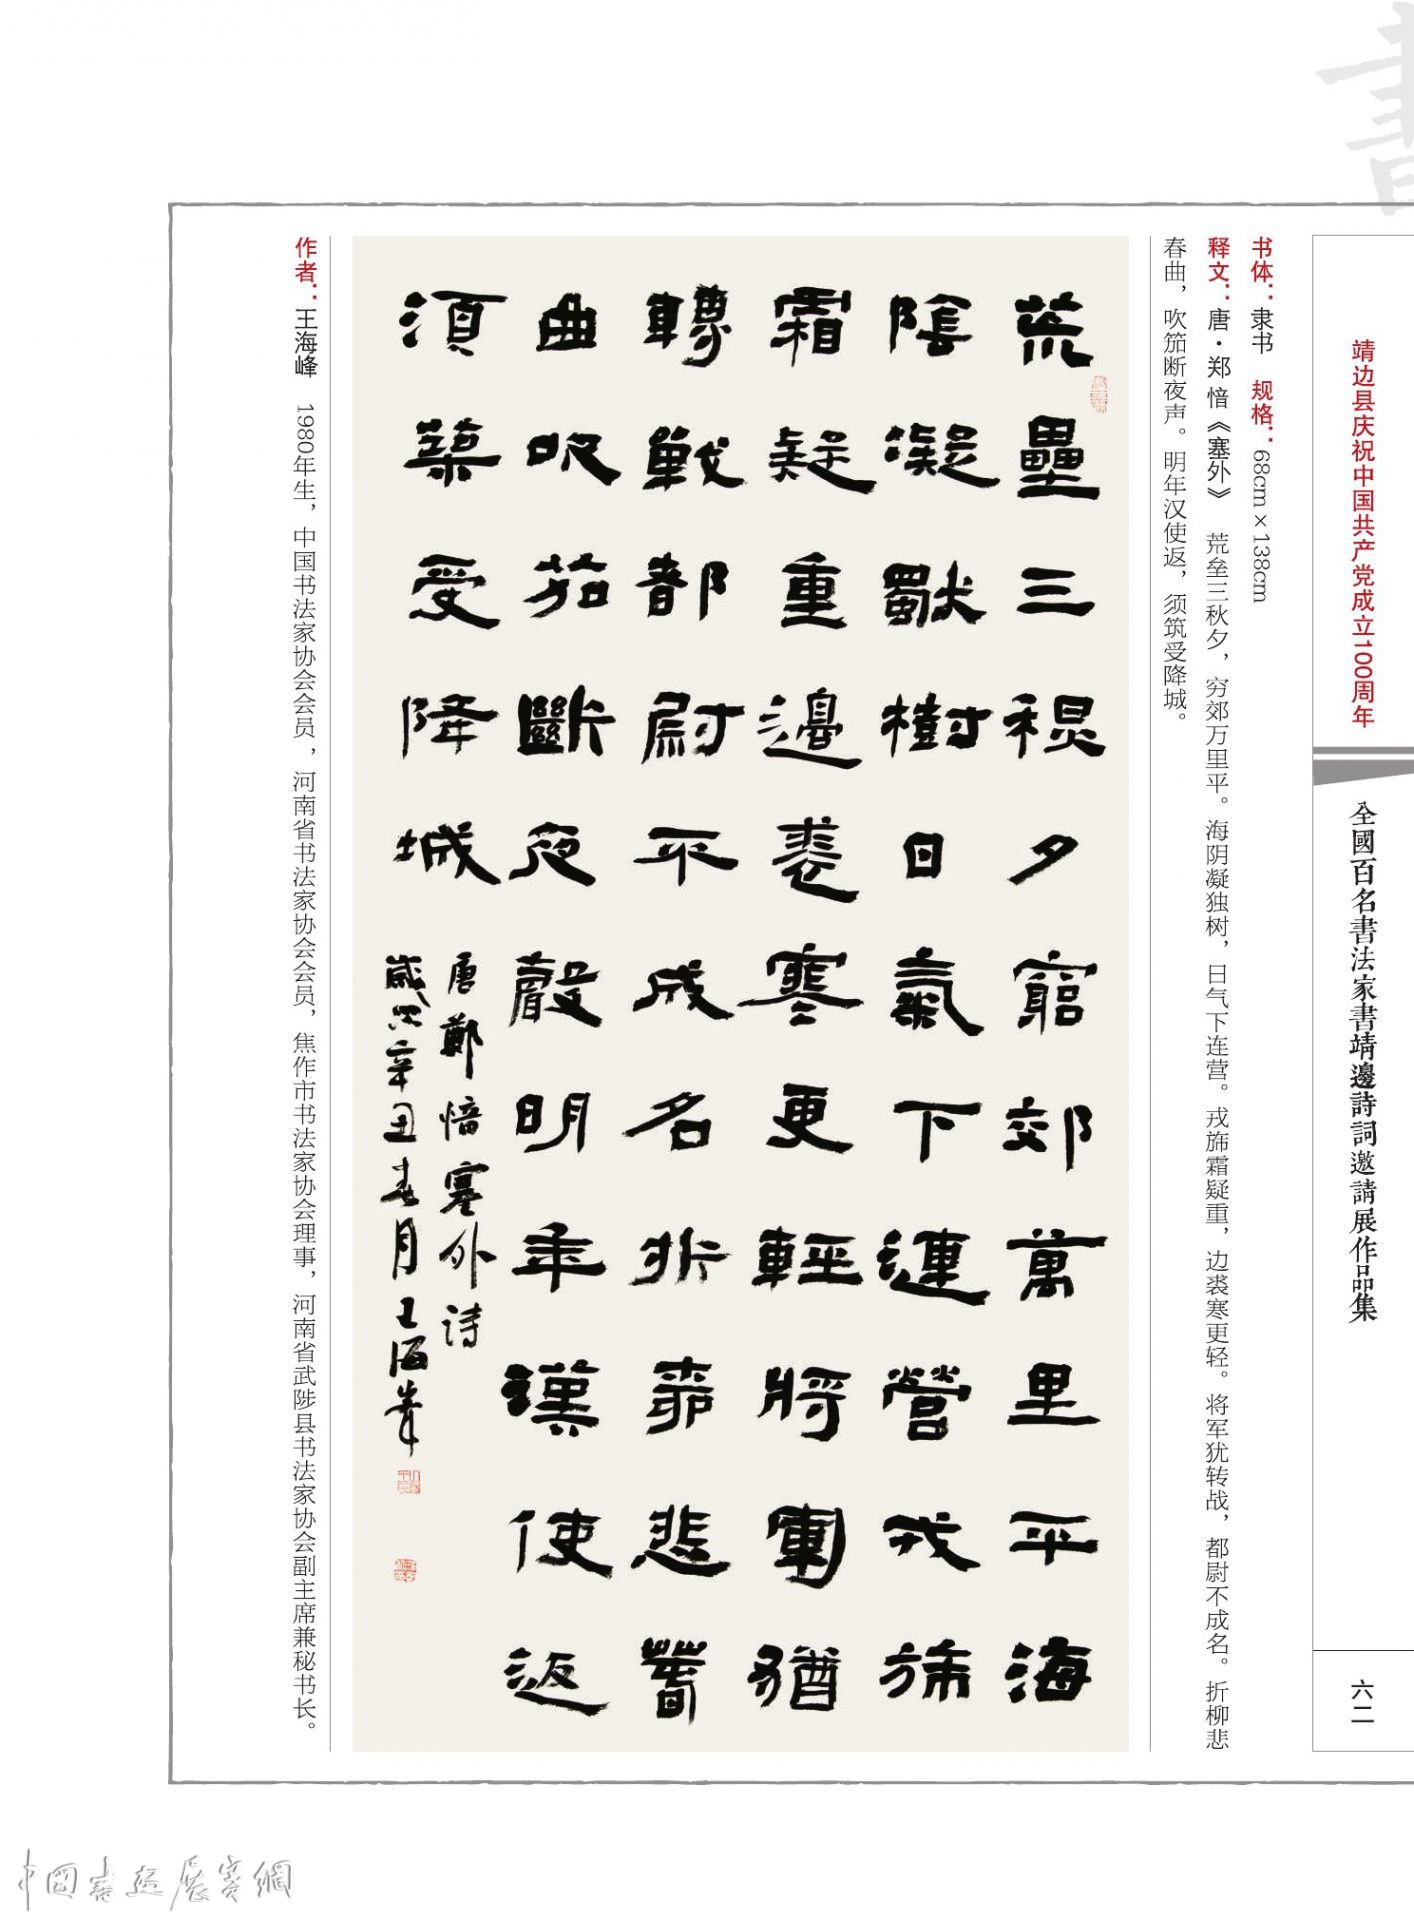 書
靖边县庆祝中国共产党成立100周年
全國百名書法家書靖邊詩詞邀請展作品集
六二
书体：隶书 规格：68cm×138cm
释文：唐·郑愔《塞外》 荒垒三秋夕，穷郊万里平。海阴凝独树，日气下连营。戎旆霜疑重，边裘寒更轻。将军犹转战，都尉不成名。折柳悲
春曲，吹笳断夜声。明年汉使返，须筑受降城。
荒壘三穐夕窮郊萬里平海
陰凝獨樹日氣下連營戎旆
霜疑重邊裘寒更輕將軍猶
轉戰都尉不成名折桺悲萅
曲吹笳斷夜聲明年漢使返
須築受降城
唐鄭愔塞外詩
歲次辛丑春月王海峰
作者：王海峰 1980年生，中国书法家协会会员，河南省书法家协会会员，焦作市书法家协会理事，河南省武陟县书法家协会副主席兼秘书长。
中國書画展賽網